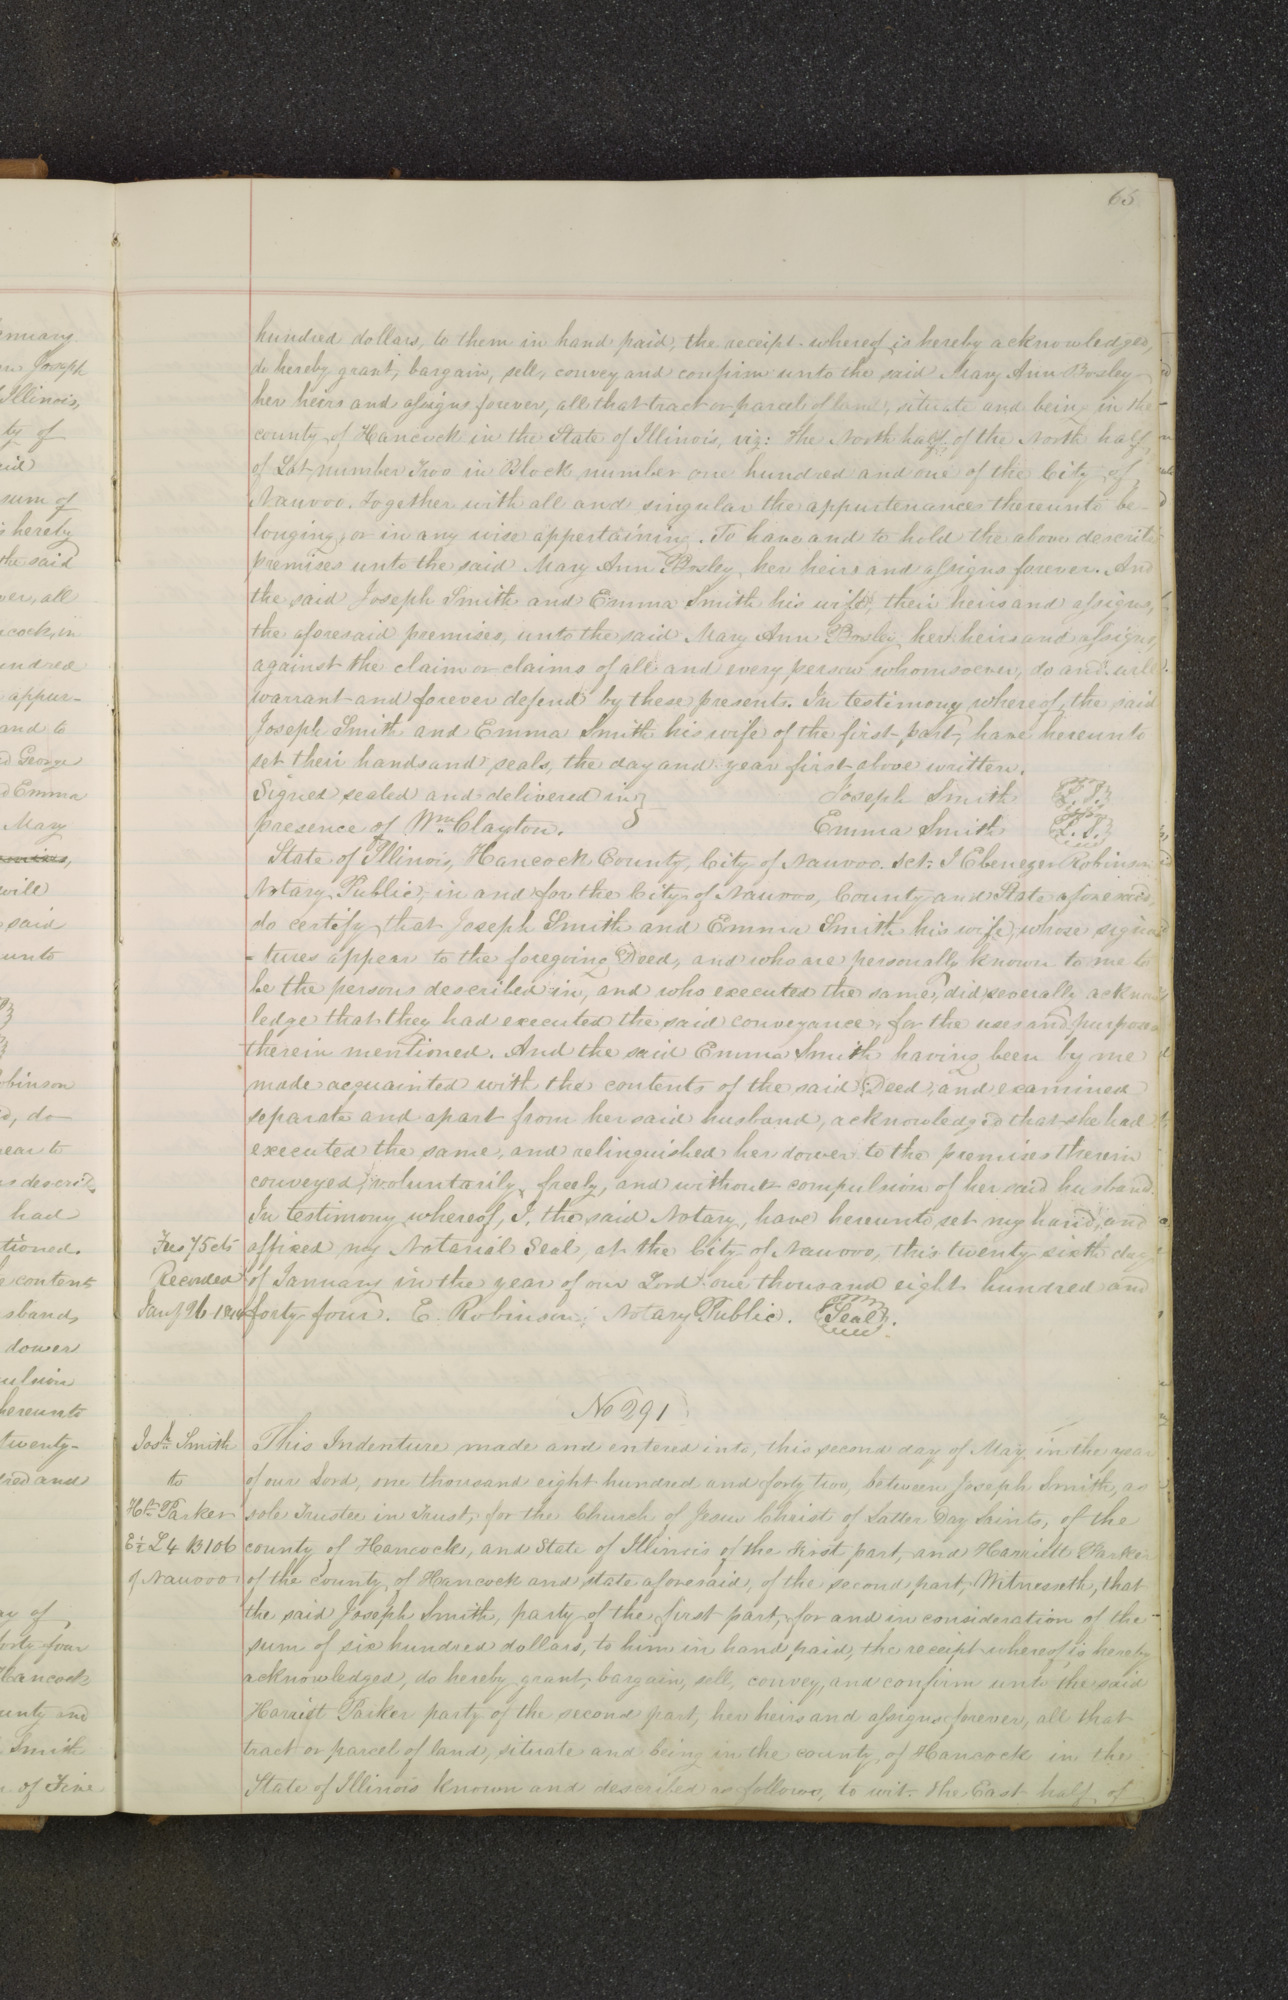 65
hundred dollars, to them in hand paid, the receipt whereof is hereby acknowledged,
do hereby grant, bargain, sell, convey and confirm unto the said Mary Ann Bosley
her heirs and assigns forever, all that tract or parcel of land, situate and being in the
county of Hancock in the State of Illinois, viz: The North half of the North half
of Lot number Two in Block number one hundred and one of the City of
Nauvoo. Together with all and singular the appurtenances thereunto be-
longing, or in any wise appertaining. To have and to hold the above describ
premises unto the said Mary Ann Bosley, her heirs and assigns forever. And
the said Joseph Smith and Emma Smith his wife, their heirs and assigns,
the aforesaid premises, unto the said Mary Ann Bosley her heirs and assigns,
against the claim or claims of all and every person whomsoever, do and will
warrant and forever defend by these presents. In testimony whereof, the said
Joseph Smith and Emma Smith his wife of the first part, have hereunto
set their hands and seals, the day and year first above written.
Signed sealed and delivered in } Joseph Smith L.S.
presence of Wm Clayton. Emma Smith L.S.
State of Illinois, Hancock County, City of Nauvoo. Sct. I Ebenezer Robinson
Notary Public, in and for the City of Nauvoo, County and State aforesaid,
do certify that Joseph Smith and Emma Smith his wife, whose signa
-tures appear to the foregoing Deed, and who are personally known to me to
be the persons described in, and who executed the same, did severally acknow
ledge that they had executed the said conveyance, for the uses and purposes
therein mentioned. And the said Emma Smith having been by me
made acquainted with the contents of the said Deed, and examined
separate and apart from her said husband, acknowledged that she had
executed the same, and relinquished her dower to the premises therein
conveyed, voluntarily, freely, and without compulsion of her said husband.
In testimony whereof, I, the said Notary, have hereunto set my hand, and
Fees 75 cts affixed my Notarial Seal, at the City of Nauvoo, this twenty sixth day
Recorded of January in the year of our Lord one thousand eight hundred and
Jany 26 1844 forty four. E. Robinson, Notary Public. Seal.
No 291
Josh Smith This Indenture made and entered into, this second day of May in the year
to of our Lord, one thousand eight hundred and forty two, between Joseph Smith, as
Ht Parker sole Trustee in Trust, for the Church of Jesus Christ of Latter Day Saints, of the
E ½ L 4 B 106 county of Hancock, and State of Illinois of the first part, and Harriett Parker
of Nauvoo of the county of Hancock and state aforesaid, of the second part, Witnesseth, that
the said Joseph Smith, party of the first part, for and in consideration of the
sum of six hundred dollars, to him in hand paid, the receipt whereof is hereby
acknowledged, do hereby grant, bargain, sell, convey, and confirm unto the said
Harriet Parker party of the second part, her heirs and assigns forever, all that
tract or parcel of land, situate and being in the county of Hancock in the
State of Illinois known and described as follows, to wit. The East half of